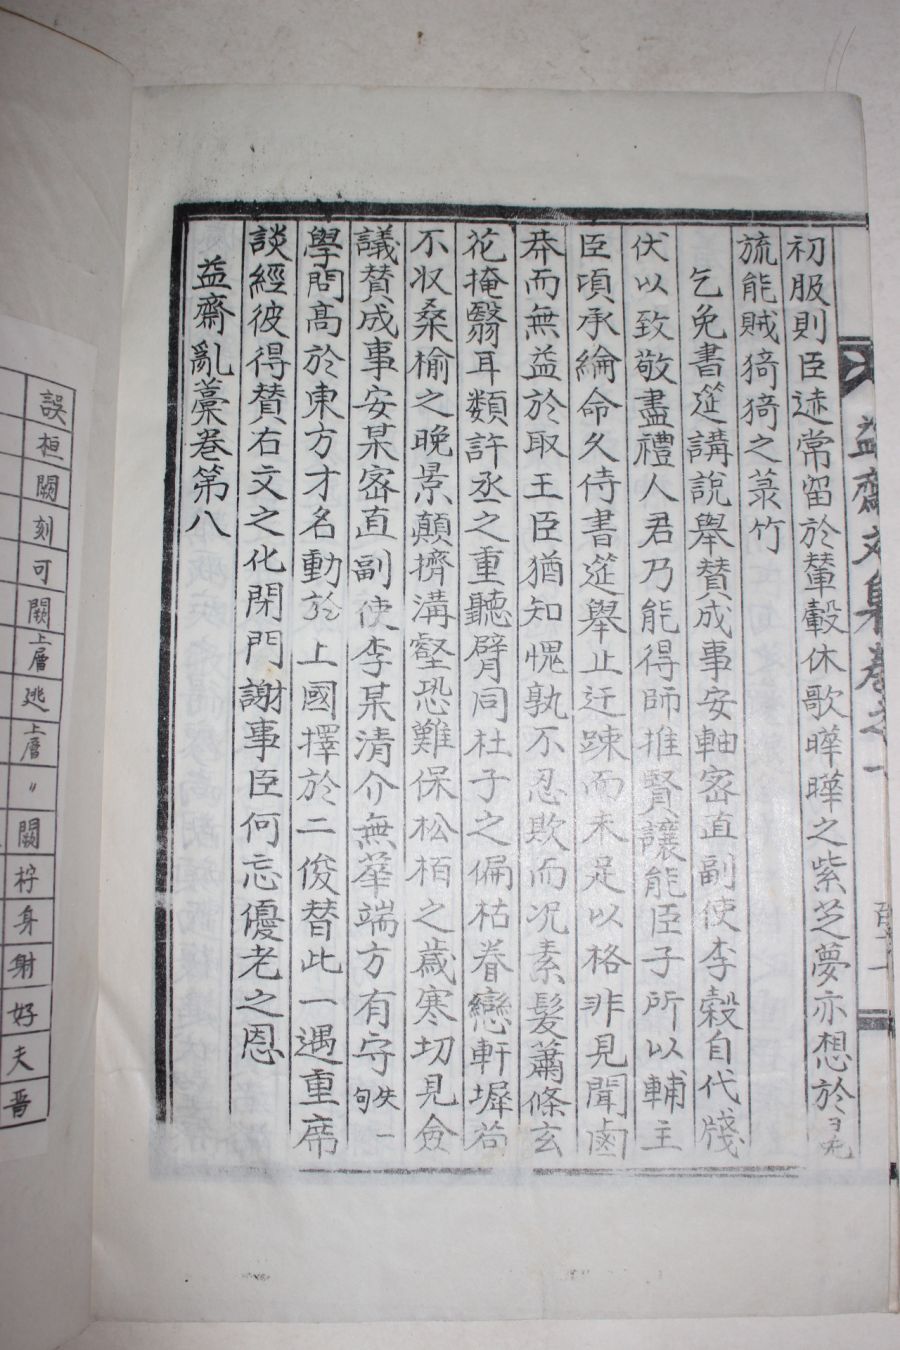 初服則臣迹常留於輦轂休歌曄曄之紫芝夢亦想於
旒能賊猗猗之菉竹
乞免書筵講說舉賛成事安軸密直副使李穀自代牋
伏以致敬盡禮人君乃能得師推賢讓能臣子所以輔主
臣頃承綸命久侍書筵舉止迂踈而未足以格非見聞鹵
莽而無益於取王臣猶知愧孰不忍欺而况素髮蕭條玄
花掩翳耳類許丞之重聽臂同杜子之偏枯眷戀軒墀若
不収桑榆之晚景顛擠溝壑恐難保松栢之歲寒切見僉
議賛成事安某密直副使李某清介無華端方有守失一句
學問高於東方才名動於上國擇於二俊替此一遇重席
談經彼得賛右文之化閉門謝事臣何忘優老之恩
益齋亂藁卷第八
益齋文集卷之
誤
桓
闕
刻
可
闕
上層
逃
上層
〃
闕
柠
身
射
好
夫
晋